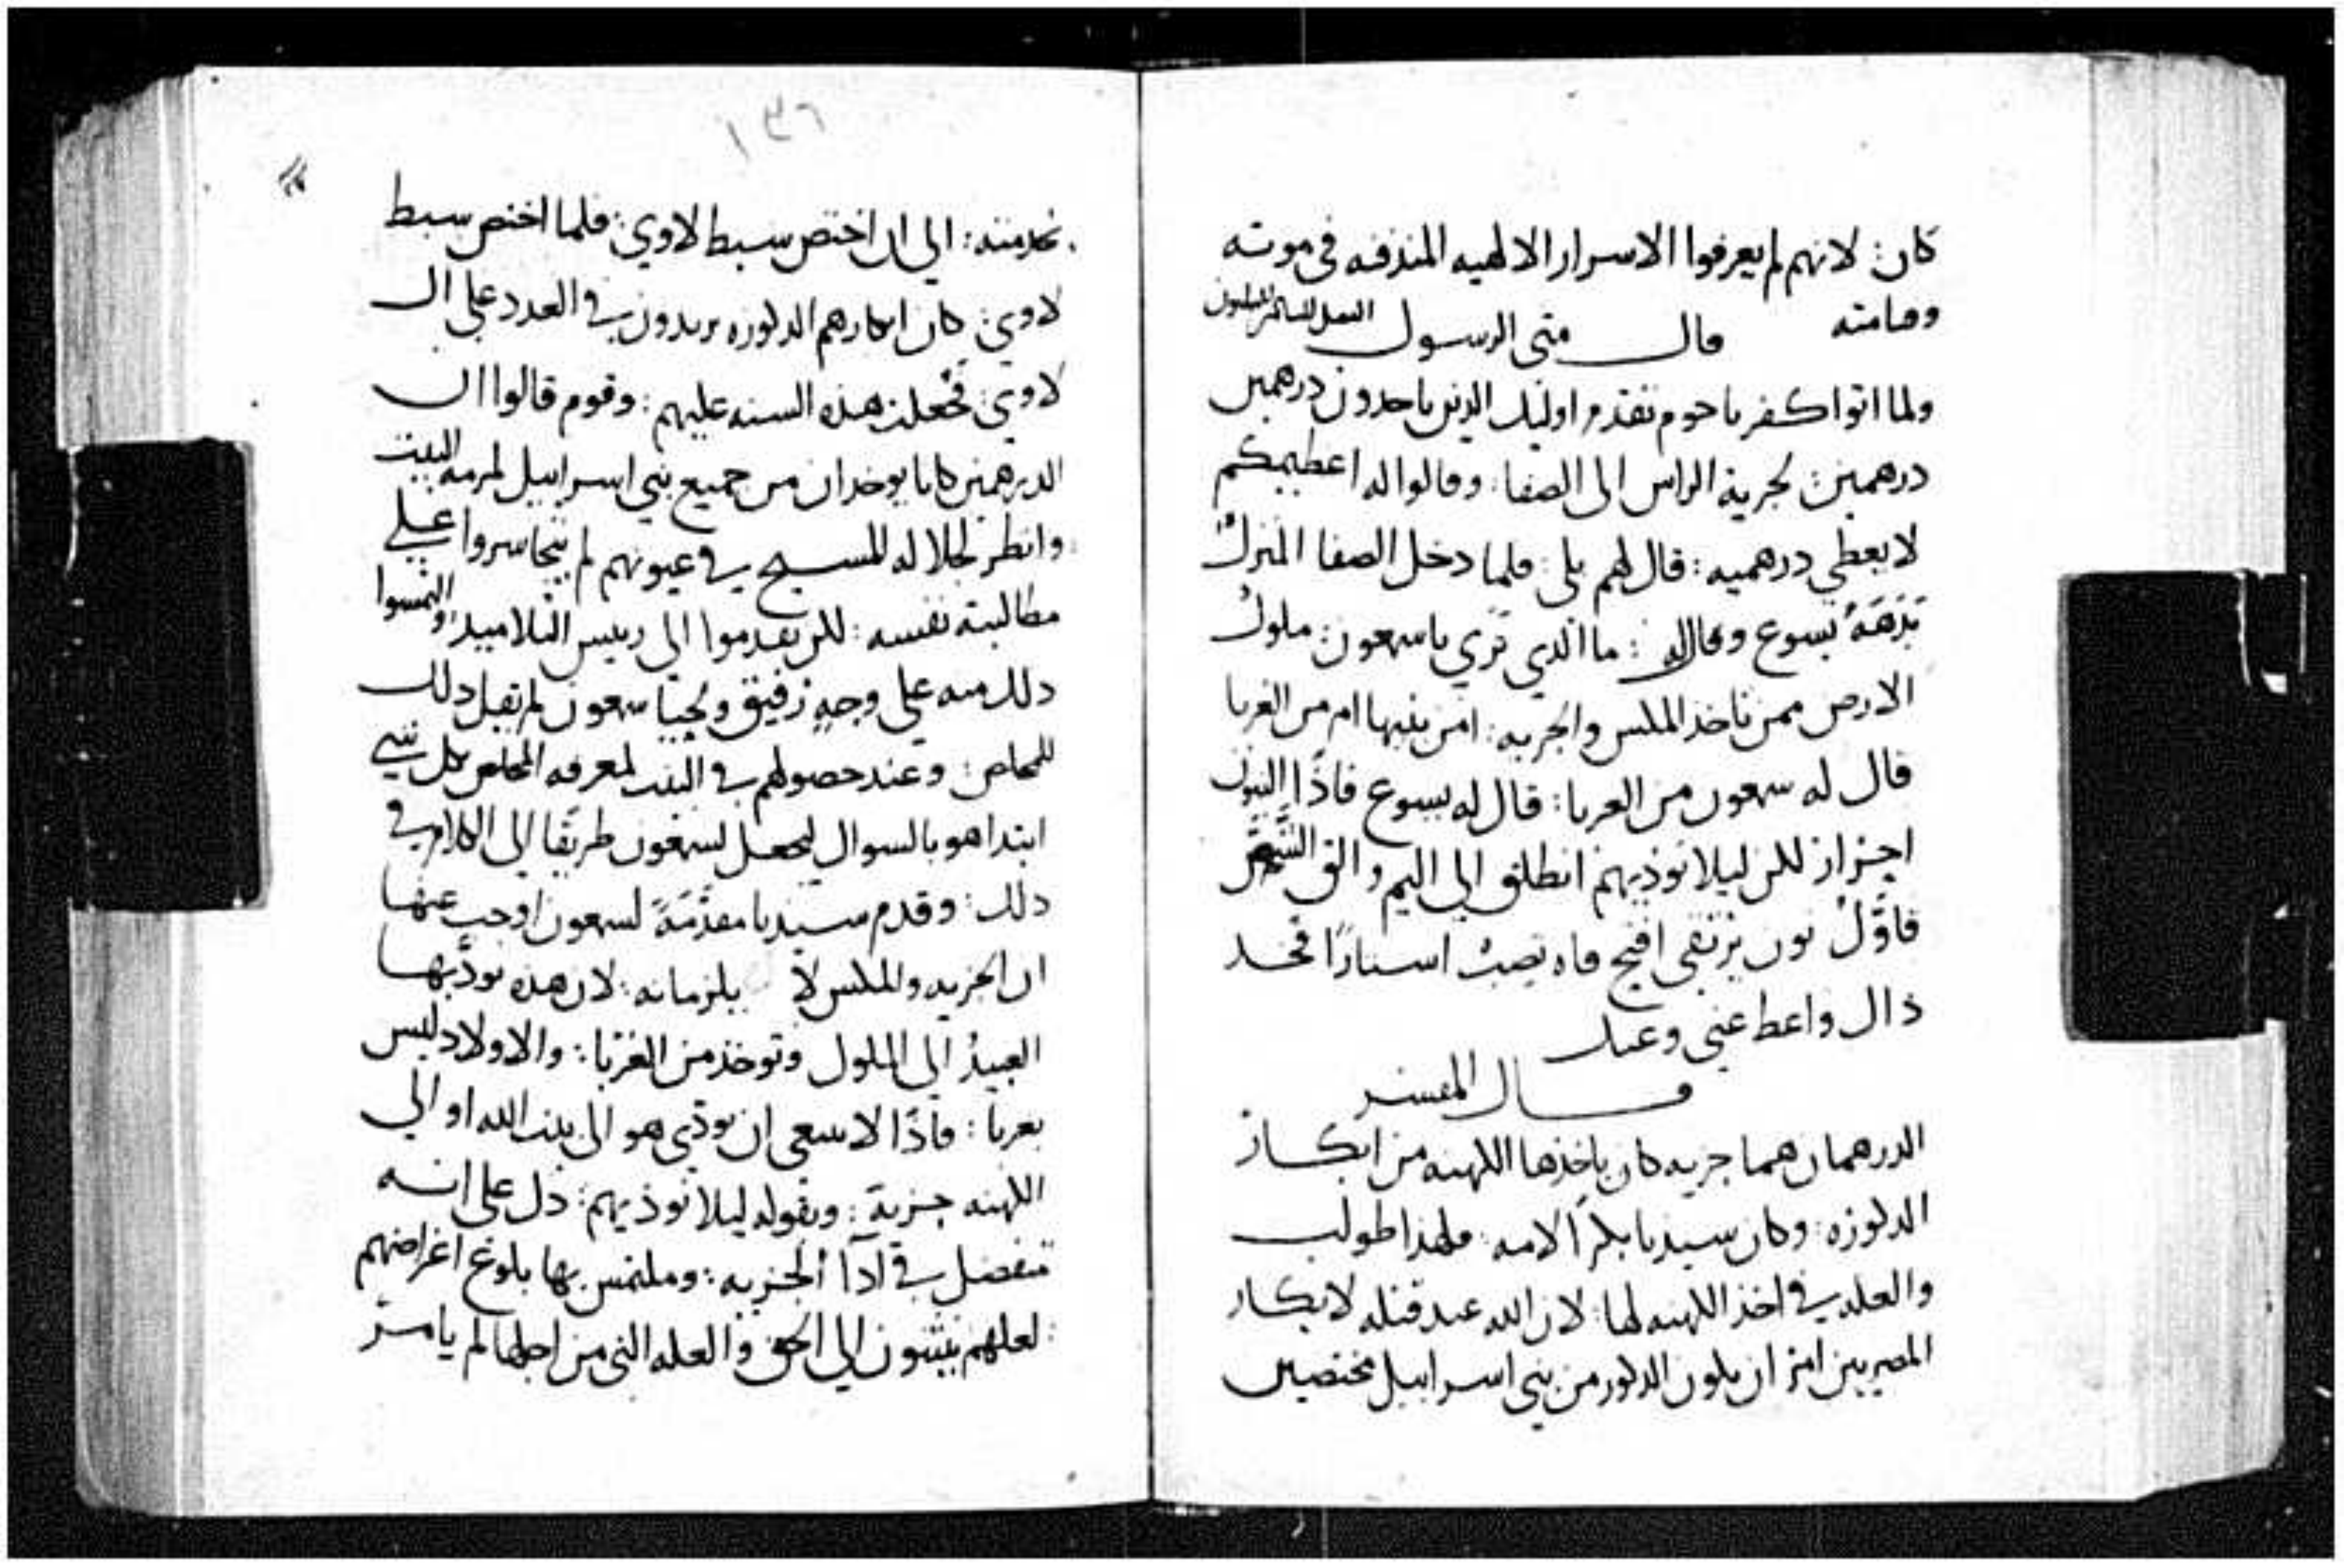 كان: لانهم لم يعرفوا الاسرار الالهيه المندفنه في موته
وقيامته قال متى الرسول
ولما اتوا كفرناحوم تقدم اوليك الدين ياخدون درهمين
درهمين: لجزية الراس الى الصفا: وقالوا له اعظيمكم
لا يعطي درهميه: قال لهم بلى: فلما دخل الصفا المنزل
بَدَهَهُ يسوع وقال له: ما الدي ترى يا سمعون: ملوك
الارض ممن تاخد المكس والجزيه: امن بنيها ام من الغربا
قال له سمعون من الغربا: قال له يسوع فاذًا البنون
احرار لكن ليلا نوذيهم انطلق الى اليم والق الشص
فاول نون يرتقي افتح فاه تصب استارًا فخد
ذاك واعط عني وعنك
قال المفسر
الدرهمان هما جزيه كان ياخذها الكهنه من ابكار
الدكوره: وكان سيدنا بكرًا لامه: فلهذا طولب
والعله في اخذ الكهنه لها: لان الله عند قتله لابكار
المصريين امر ان يكون الدكور من بني اسراييل مختصين
١٣٦
بخدمته: الى ان اختص سبط لاوي: فلما اختص سبط
لاوي: كان ابكارهم الدكوره يزيدون في العدد على ال
لاوي: فجعلت هذه السنه عليهم: وقوم قالوا ان
الدرهمين كانا يوخدان من جميع بني اسراييل لمرمه البيت
وانظر لجلاله المسيح في عيونهم لم يتجاسروا على
مطالبته نفسه: لكن تقدموا الى رييس التلاميد والتمسوا
دلك منه على وجهٍ رفيق ولحيا سمعون لم يقبل دلك
للمخلص: وعند حصولهم في البيت لمعرفه المخلص بكل شي
ابتدا هو بالسوال ليجعل لسمعون طريقا الى الكلام في
دلك: وقدم سيدنا مقدمَةً لسمعون اوجب عنها
ان الجزيه والمكس لا يلزمانه: لان هذه يودّيها
العبيد الى الملوك وتوخذ من الغربا: والاولاد ليس
بغربا: فاذًا لا ينبغي ان يودّي هو الى بيت الله او الى
الكهنه جزية: وبقوله ليلا نوذيهم: دل على انه
متفضل في ادآ الجزيه: وملتمس بها بلوغ اغراضهم
لعلهم ينثنون الى الحق والعله التي من اجلها لم يامر